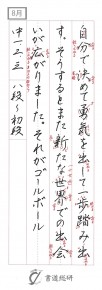 8月
自分で決めて勇気を出して一歩踏み出
す。そうするとまた新たな世界での出会
いが広がりました。それがゴルボール
中一・二・三 八段〜初段
書道総研